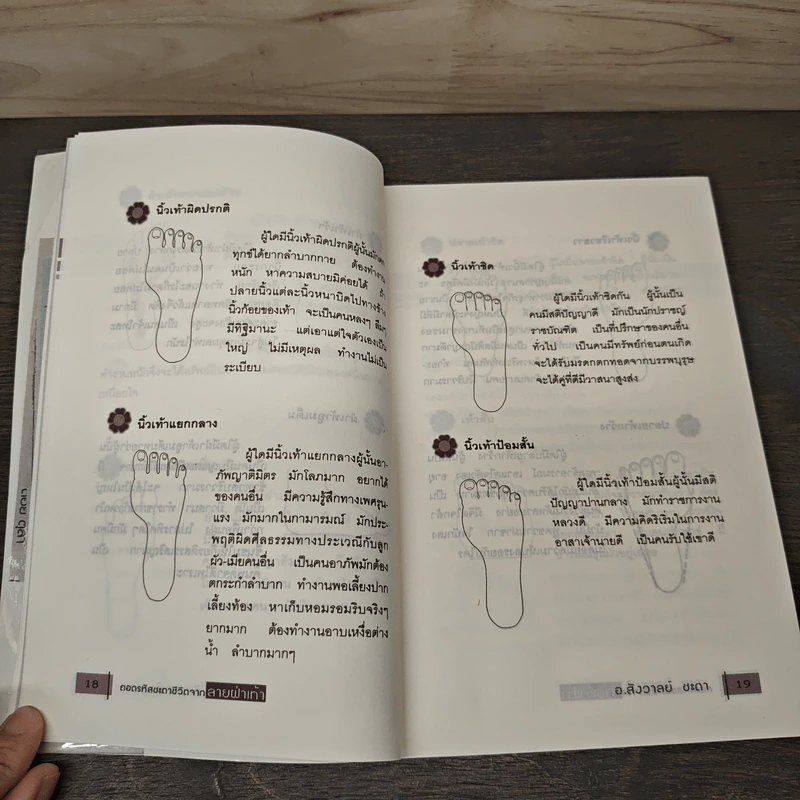 นิ้วเท้าผิดปรกติ
ผู้ใดมีนิ้วเท้าผิดปรกติผู้นั้นมักตก
ทุกข์ได้ยากลำบากกาย ต้องทำงาน
หนัก หาความสบายมิค่อยได้ ถ้า
ปลายนิ้วแต่ละนิ้วหนาบิดไปทางข้าง
นิ้วก้อยของเท้า จะเป็นคนหลงๆ ลืมๆ
มีทิฐิมานะ แต่เอาแต่ใจตัวเองเป็น
ใหญ่ ไม่มีเหตุผล ทำงานไม่เป็น
ระเบียบ
นิ้วเท้าแยกกลาง
ผู้ใดมีนิ้วเท้าแยกกลางผู้นั้นอา-
ภัพญาติมิตร มักโลภมาก อยากได้
ของคนอื่น มีความรู้สึกทางเพศรุน-
แรง มักมากในกามารมณ์ มักประ-
พฤติผิดศีลธรรมทางประเวณีกับลูก
ผัว-เมียคนอื่น เป็นคนอาภัพมักต้อง
ตกระกำลำบาก ทำงานพอเลี้ยงปาก
เลี้ยงท้อง หาเก็บหอมรอมริบจริงๆ
ยากมาก ต้องทำงานอาบเหงื่อต่าง
น้ำ ลำบากมากๆ
18 ถอดรหัสชะตาชีวิตจาก ลายฝ่าเท้า
นิ้วเท้าชิด
ผู้ใดมีนิ้วเท้าชิดกัน ผู้นั้นเป็น
คนมีสติปัญญาดี มักเป็นนักปราชญ์
ราชบัณฑิต เป็นที่ปรึกษาของคนอื่น
ทั่วไป เป็นคนมีทรัพย์ก่อนตนเกิด
จะได้รับมรดกตกทอดจากบรรพบุรุษ
จะได้คู่ที่ดีมีวาสนาสูงส่ง
นิ้วเท้าป้อมสั้น
ผู้ใดมีนิ้วเท้าป้อมสั้นผู้นั้นมีสติ
ปัญญาปานกลาง มักทำราชการงาน
หลวงดี มีความคิดริเริ่มในการงาน
อาสาเจ้านายดี เป็นคนรับใช้เขาดี
อ.สังวาลย์ ชะดา 19